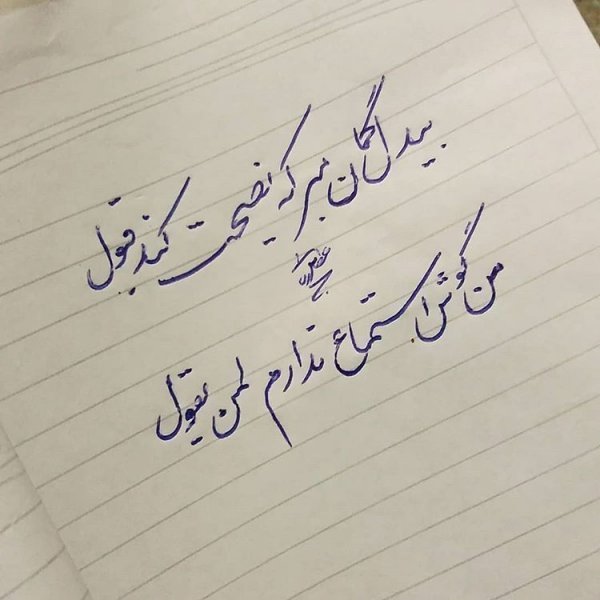 بیدل گمان مبر که نصیحت کند قبول
من گوش استماع ندارم لمن یقول